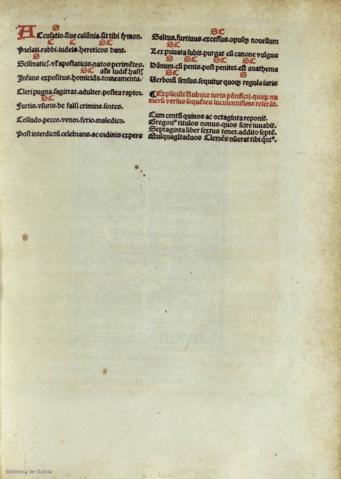 Accusatio sine calūnia. sit tibi symon.
Prelati. rabbi. iudeis. hereticos dant.
S
Scismatic⁹. ut apostaticis. natos perimētes.
Infans expositus. homicida. torneamenta.
Cleri pugna. sagittat. adulter. postea raptor.
Furtis. vsuris. de falsi crimine. sortes.
Colludo. pecco. venor. ferio. maledico.
Post interdictū celebrans. ac ordinis expers
SC
Saltus. furtiuus. excessus. opusq; nouellum
SC
Rex priuata subit. purgat cū canone vulgus
SC SC SC
Dānum. cū penis. post penitet. est anathema
SC
Verborū sensus. sequitur quoq; regula iuris
Expliciūt Rubrice iuris pōtificij. quaꝝ nu
merū versus sequētes luculentissime reserāt.
Cum centū quinos ac octaginta reponit.
Gregori⁹ titulos nonus. quos scire iuuabit.
Septaginta liber sextus tenet. addito septē.
Quinquagītaduos Clemēs nūerat tibi qnt⁹.
Biblioteca de Galicia